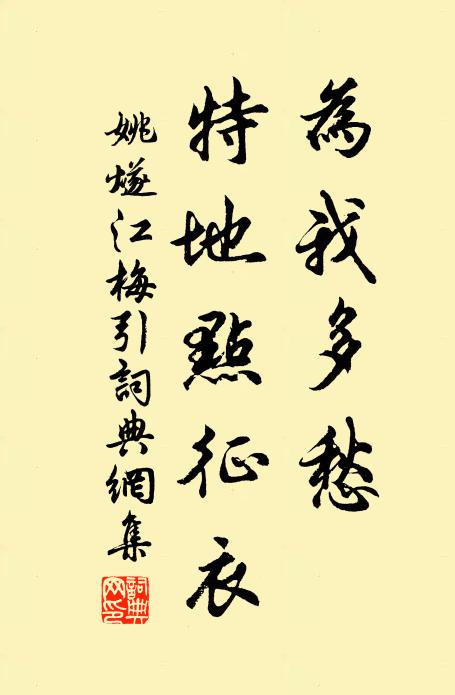 為我多愁
特地點征衣
姚燧江梅引詞典網集
詞典
网印